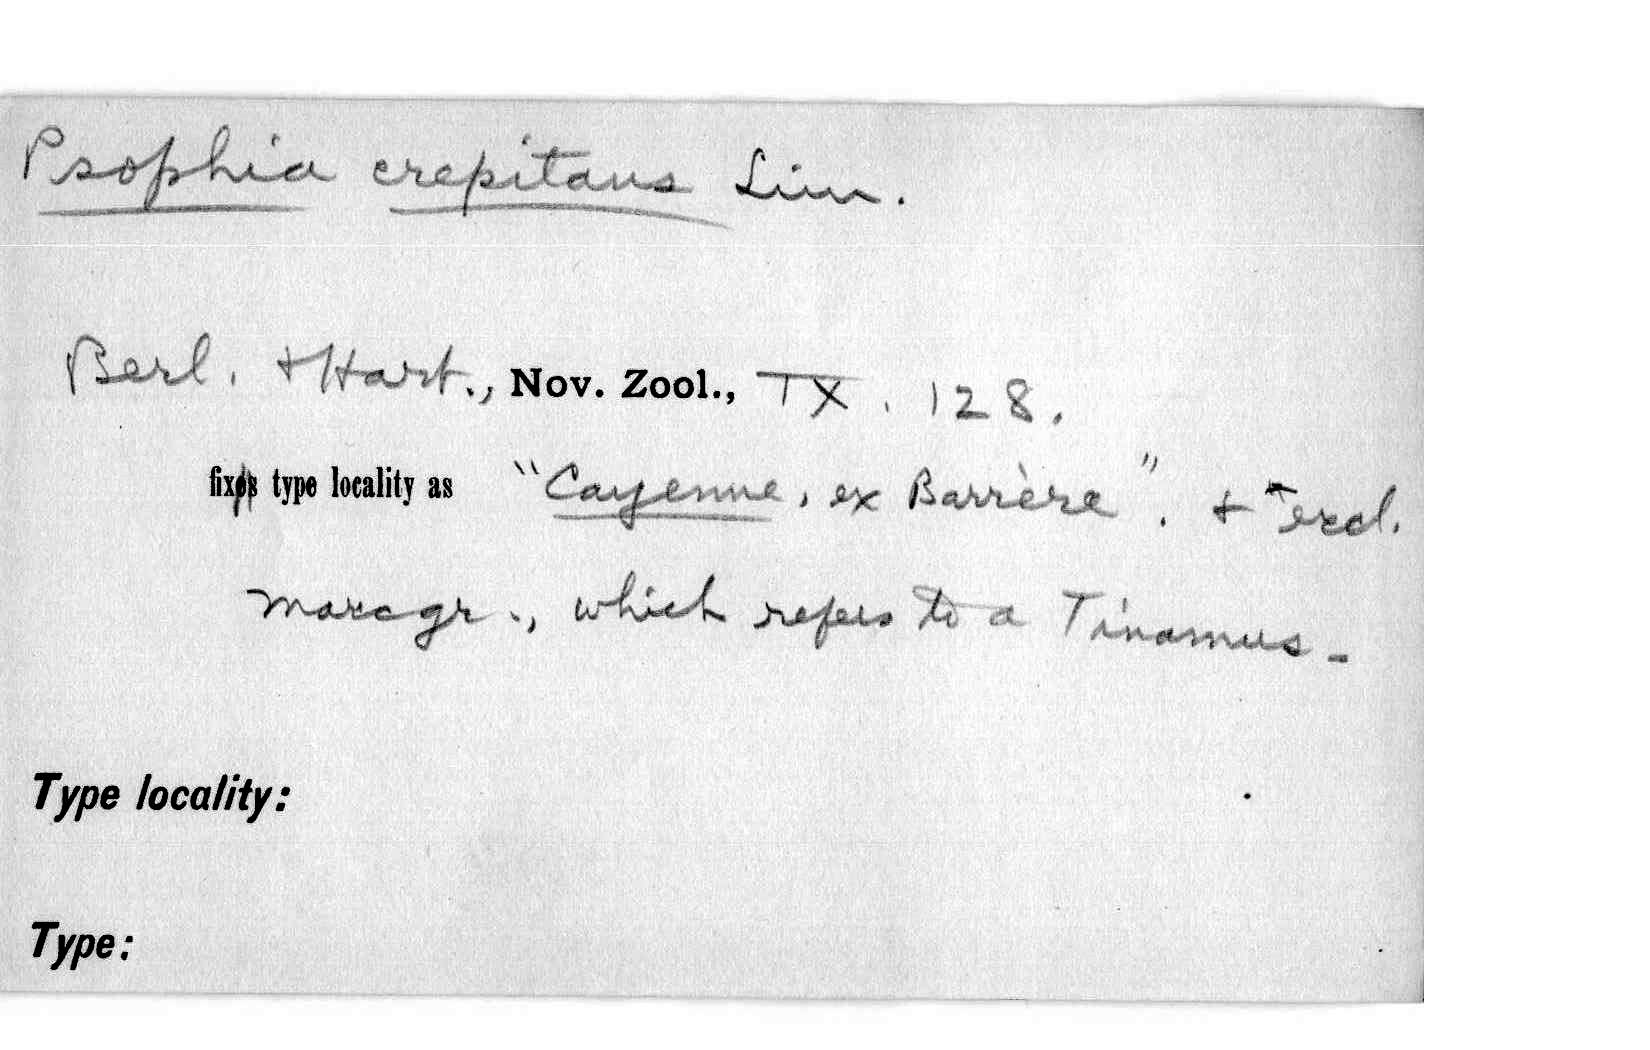 Psophia crepitans Linn.
Berl. + Hart., Nov. Zool., IX. 128.
fixes type locality as "Cayenne, ex Barrère". + excl.
Marcgr., which refers to a Tinamus.
Type locality:
Type: